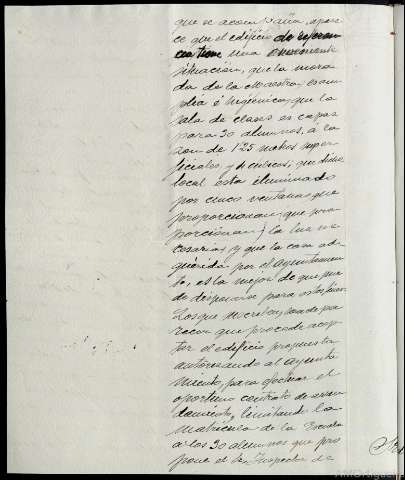 que se acompaña, apare
ce que el edificio de referen
cia tiene una
situacion, que la mora
da de la Maestra, es am
plia é higienica, que la
sala de clases es capas
para 30 alumnos, á la
zon de 1'25 metros super
ficiales y 4 cubicos, que dicho
local esta iluminado
por cinco ventanas que
proporcionan, que pro
porcionan, la luz ne
cesaria, y que la casa ad
quirida por el Ayuntamien
to, es la mejor de que pue
de disponerse para estos fines
Los que suscriben son de pa
recer que procede acep
tar el edificio propuesto
autorizando al Ayunta
miento, para efectuar el
oportuno contrato de arren
damiento, limitando la
matricula de la Escuela
a los 30 alumnos que pro
pone el Sr. Inspector de